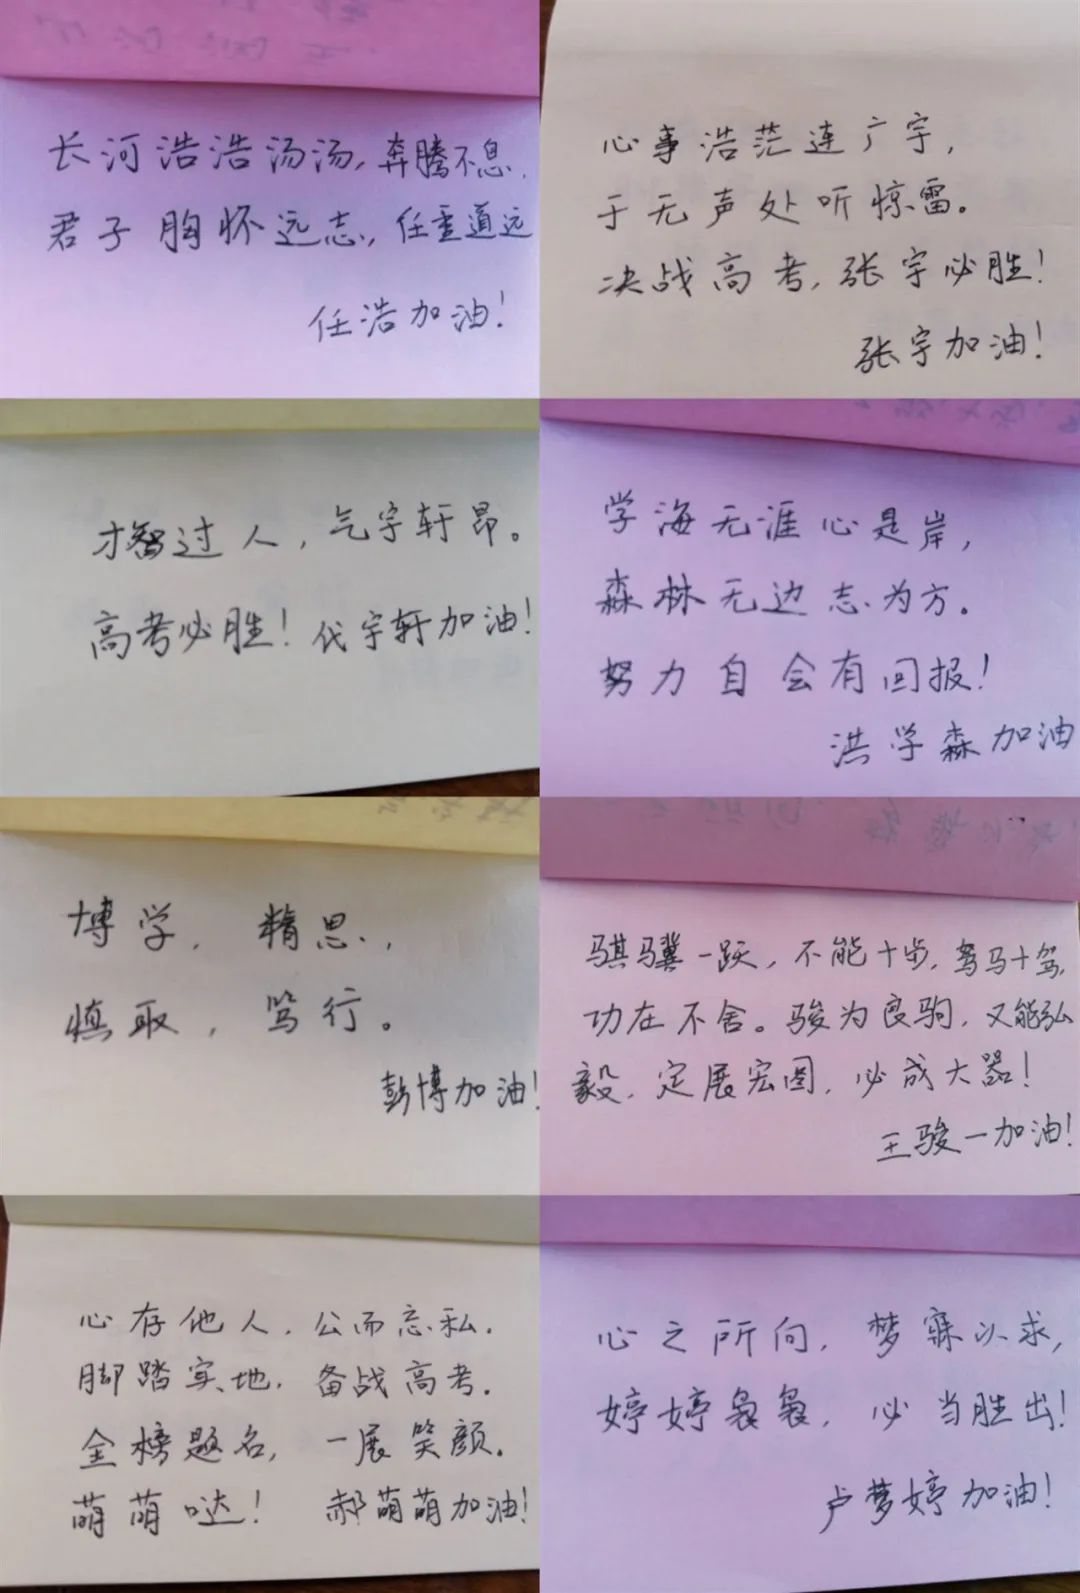 长河浩浩汤汤,奔腾不息.
君子胸怀远志,任重道远
任浩加油!
心事浩茫连广宇,
于无声处听惊雷。
决战高考,张宇必胜!
张宇加油!
才智过人,气宇轩昂。
高考必胜!代宇轩加油!
学海无涯心是岸,
森林无边志为方.
努力自会有回报!
洪学森加油
博学,精思,
慎取,笃行。
彭博加油!
骐骥一跃,不能十步,驽马十驾,
功在不舍。骏为良驹,又能弘
毅,定展宏图,必成大器!
王骏一加油!
心存他人,公而忘私.
脚踏实地,备战高考.
金榜题名,一展笑颜.
萌萌哒!郝萌萌加油!
心之所向,梦寐以求,
婷婷袅袅,必当胜出!
卢梦婷加油!